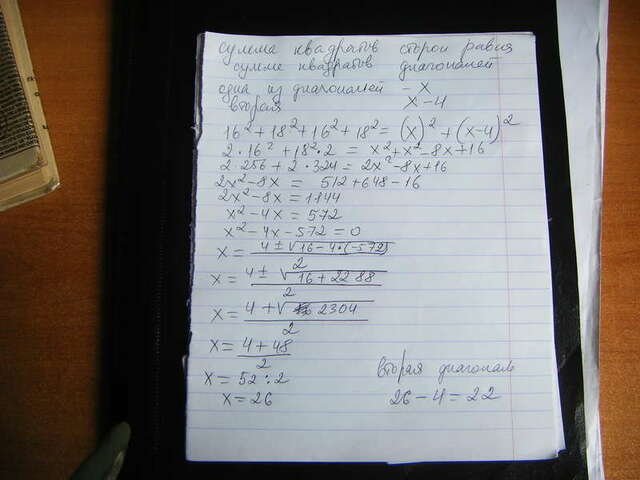 сумма квадратов сторон равна
сумме квадратов диагоналей
одна из диагоналей - x
вторая x-4
16² + 18² + 16² + 18² = (x)² + (x-4)²
2·16² + 18²·2 = x² + x² - 8x + 16
2·256 + 2·324 = 2x² - 8x + 16
2x² - 8x = 512 + 648 - 16
2x² - 8x = 1144
x² - 4x = 572
x² - 4x - 572 = 0
x = 4 ± √16 - 4·(-572) / 2
x = 4 ± √16 + 2288 / 2
x = 4 + √2304 / 2
x = 4 + 48 / 2
x = 52 : 2
x = 26
вторая диагональ
26 - 4 = 22